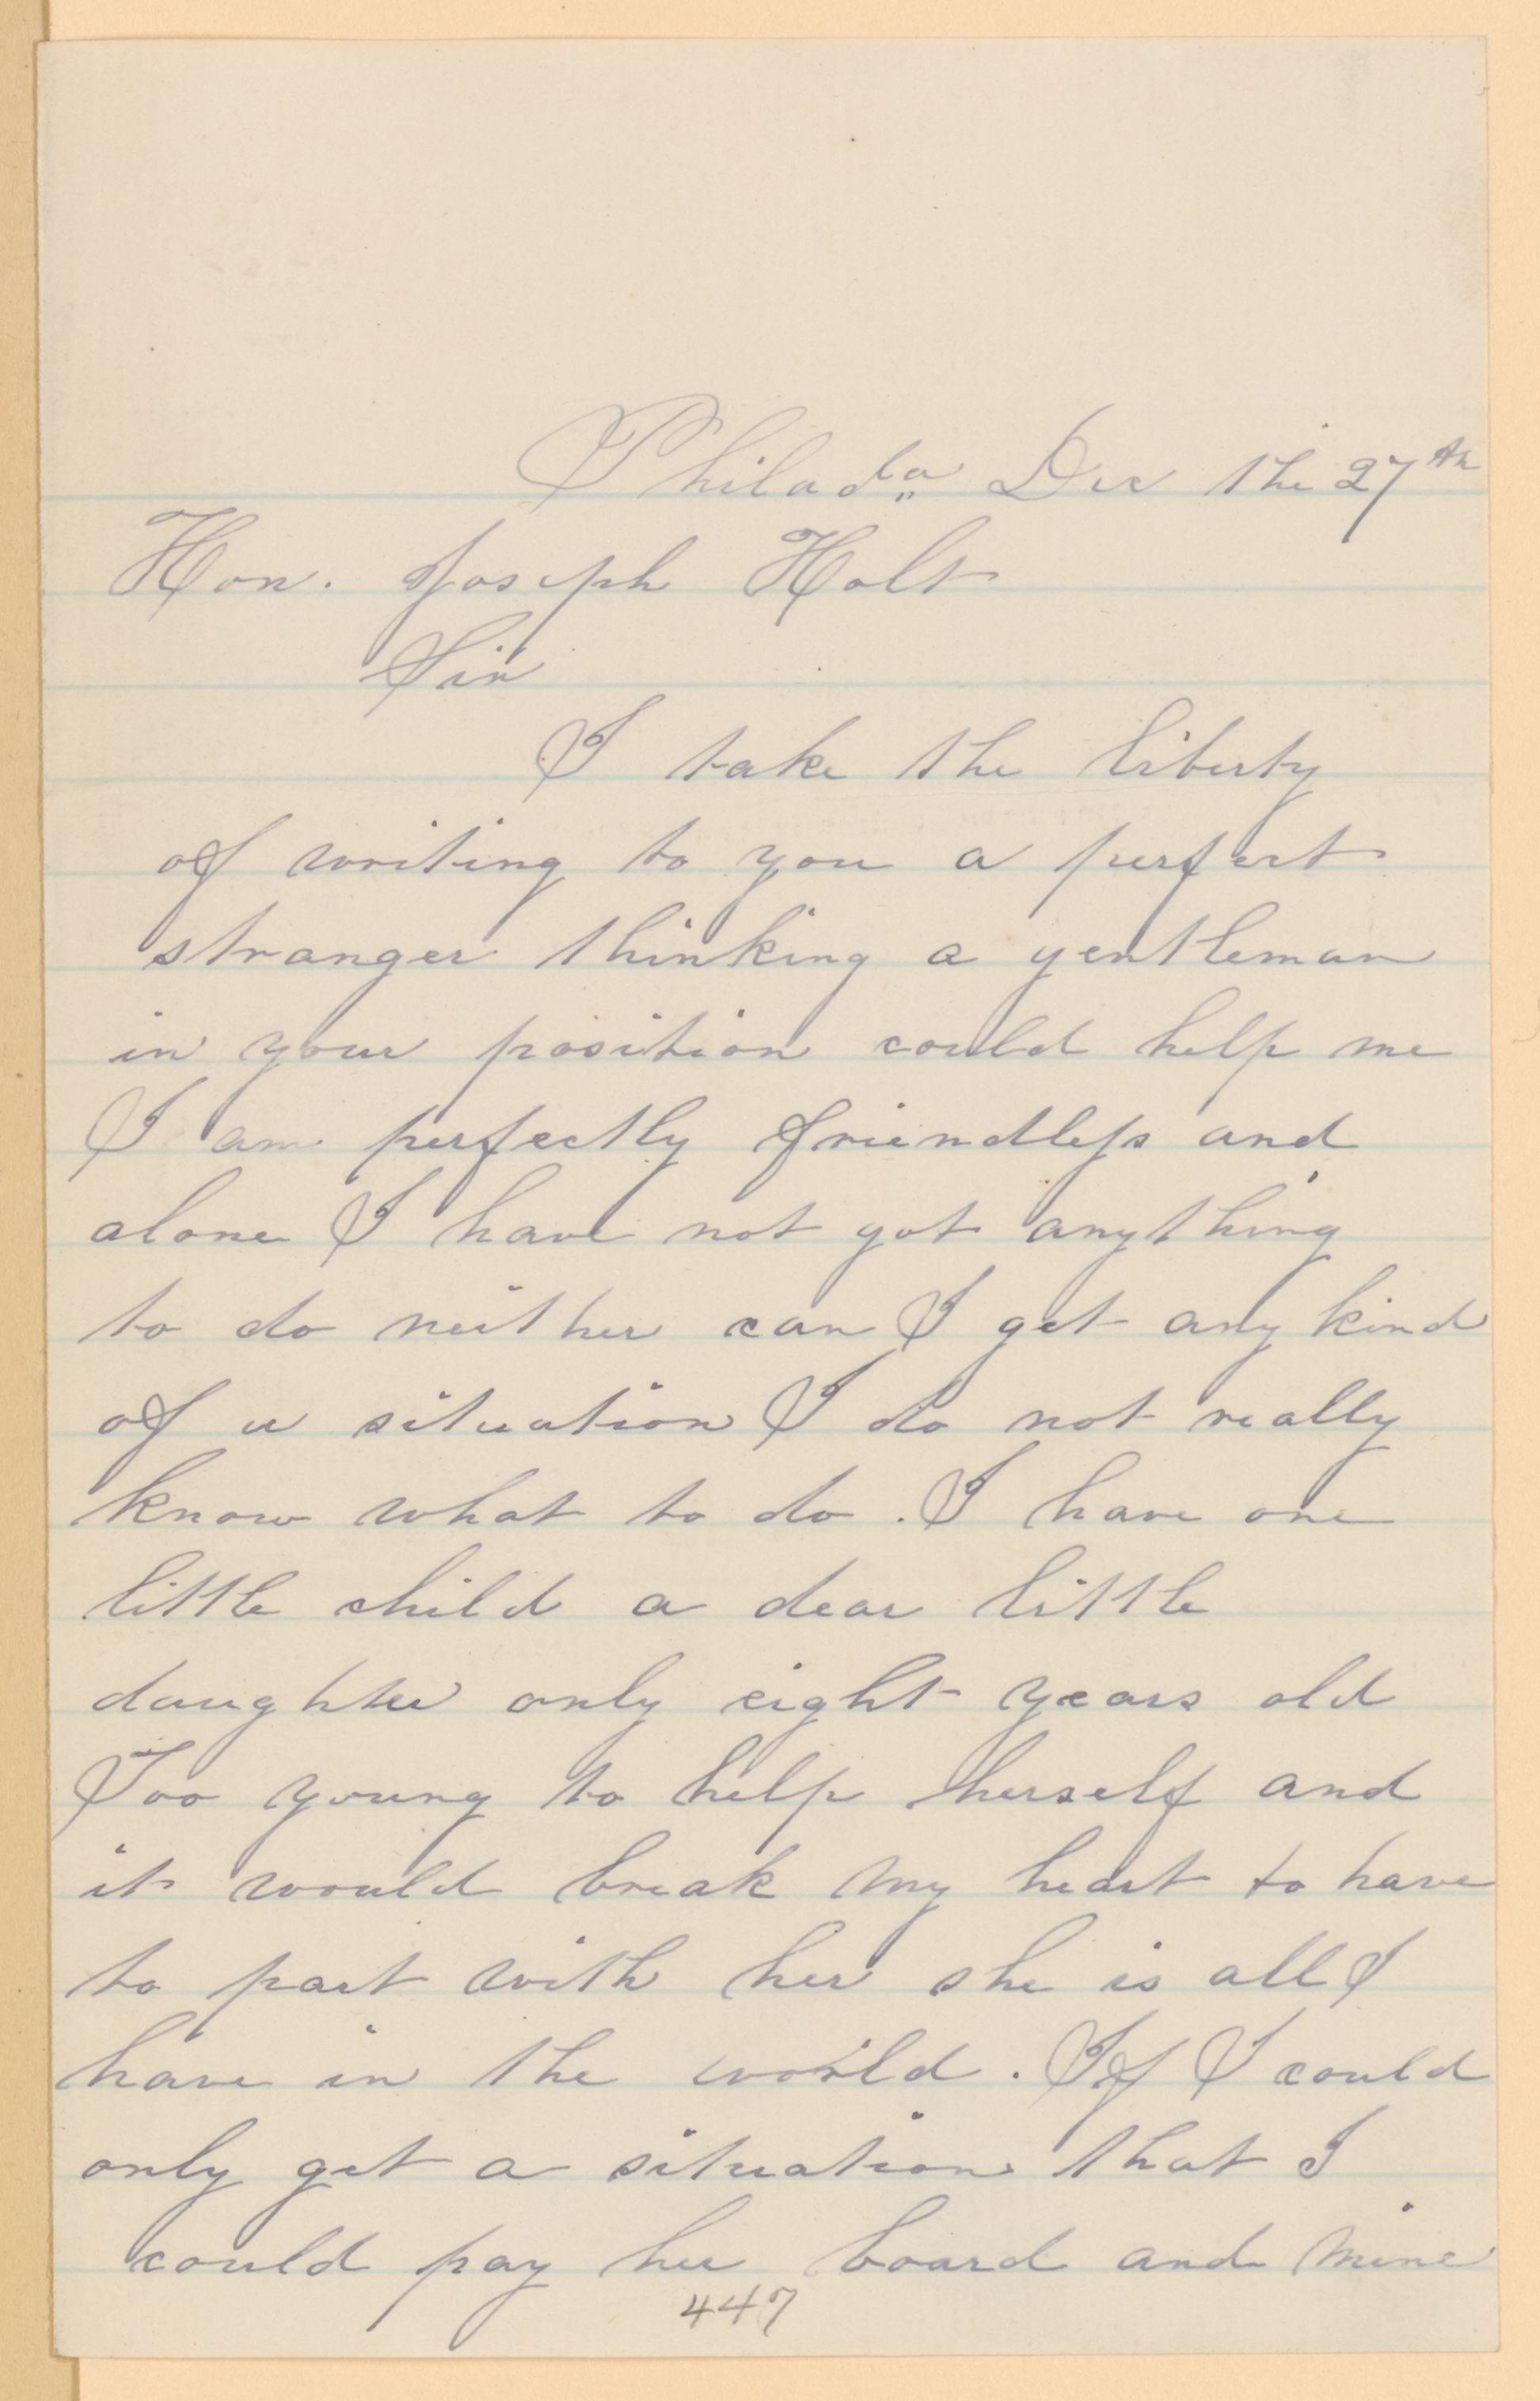 Philada Dec the 27th
Hon. Joseph Holt
Sir
I take the liberty
of writing to you a perfect
stranger thinking a gentleman
in your position could help me
I am perfectly friendless and
alone I have not got anything
to do neither can I get any kind
of a situation I do not really
know what to do. I have one
little child a dear little
daughter only eight years old
Too young to help herself and
it would break my heart to have
to part with her she is all I
have in the world. If I could
only get a situation that I
could pay her board and mine
447